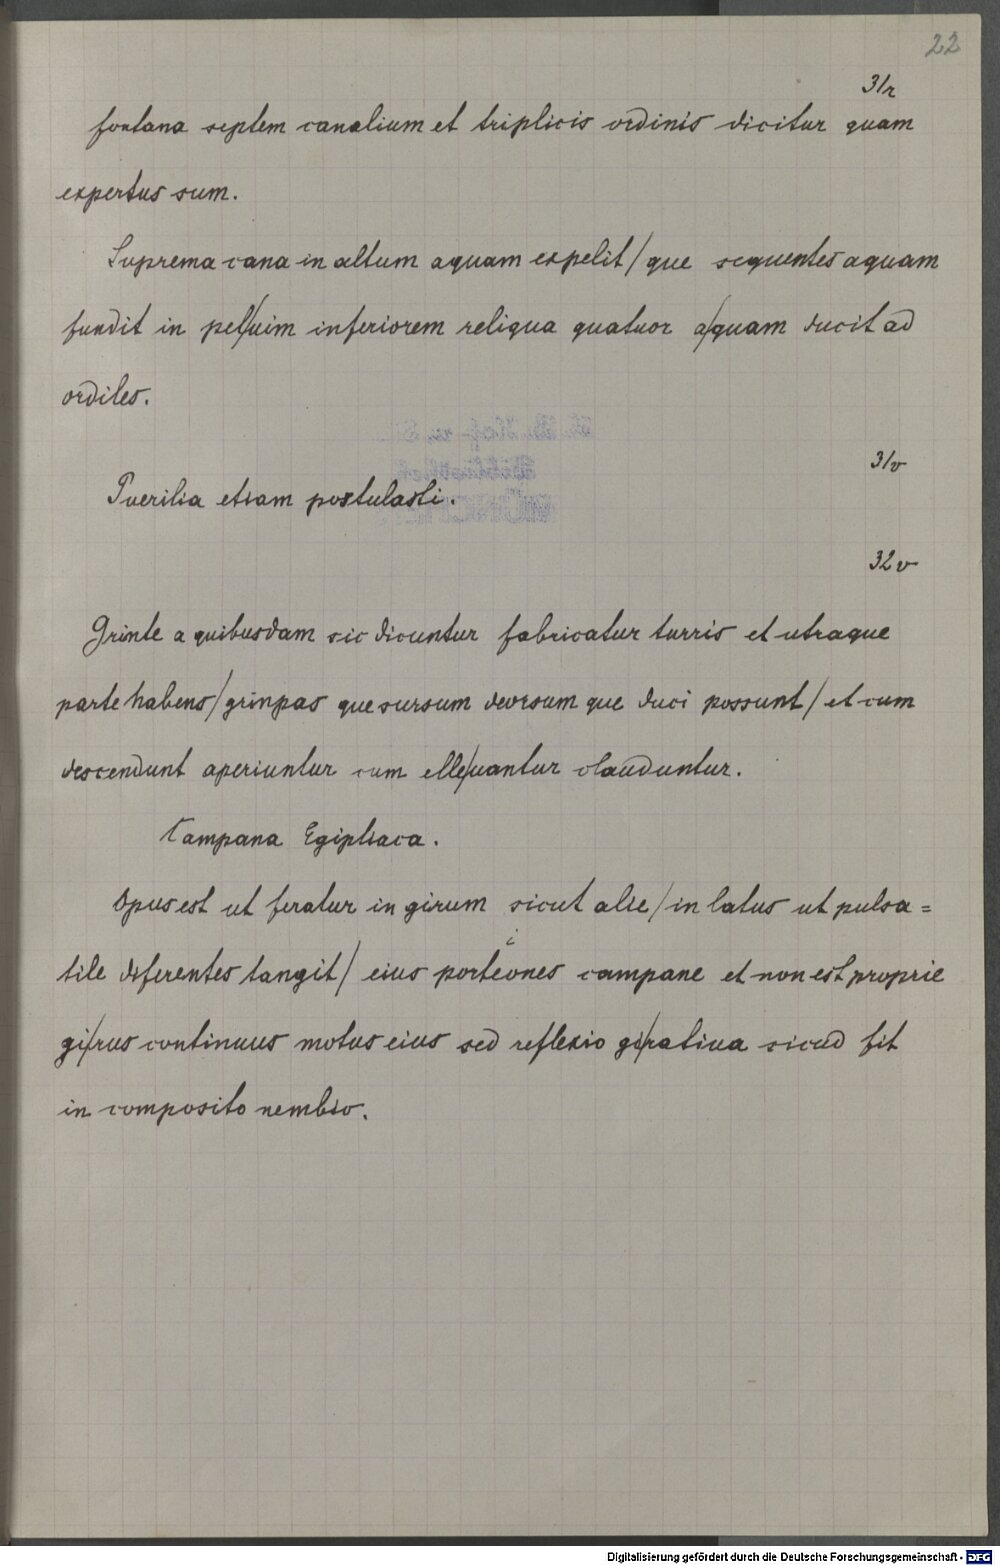 22
31r
fontana septem canalium et triplicis ordinis dicitur quam
expertus sum.
Suprema cana in altum aquam expelit/que sequentes aquam
fundit in pel/uim inferiorem reliqua quatuor a/quam ducit ad
ordiles.
31v
Puerilia etiam postulasti.
32v
Grinte a quibusdam sic dicuntur fabricatur turris et utraque
parte habens/grinpas que sursum deorsum que duci possunt/et cum
descendunt aperiuntur cum elle/uantur clauduntur.
Campana Egiptiaca.
Opus est ut feratur in girum sicut alie/in latus ut pulsa=
tile diferentes tangit/eius porteiones campane et non est proprie
gi/rus continuus motus eius sed reflexio gi/ratiua sicud fit
in composito nembio.
Digitalisierung gefördert durch die Deutsche Forschungsgemeinschaft - DFG